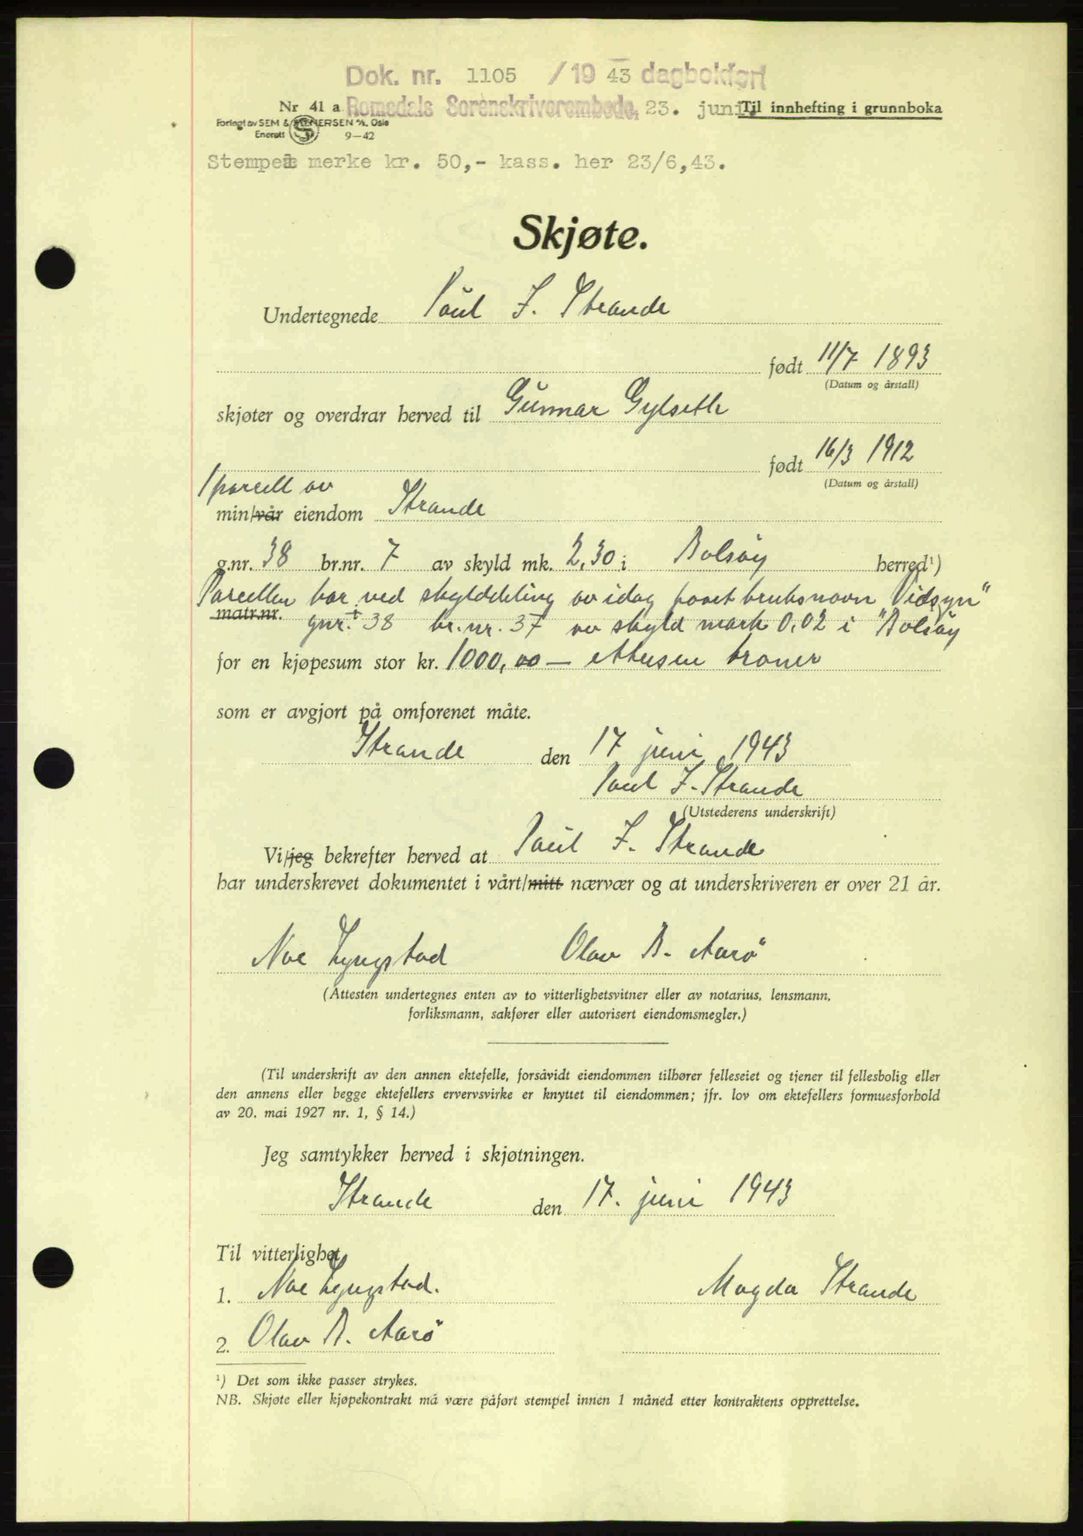 Dok. nr. 1105 /1943 dagbokført
Nr 41 a Romsdals Sorenskriverembede, 23. juni. Til innhefting i grunnboka
Forlagt av SEM & STENERSEN A/S, Oslo
Enerett 9-42
Stempel merke kr. 50,- kass. her 23/6,43.
Skjøte.
Undertegnede Paul J. Strande
født 11/7 1893
(Datum og årstall)
skjøter og overdrar herved til Gunnar Gylseth
født 16/3 1912
(Datum og årstall)
1 parcell av
min/vår eiendom Strande
g.nr. 38 br.nr. 7 av skyld mk. 2,30 i Bolsøy herred¹)
Parcellen har ved skylddeling av idag faaet bruksnavn "Vidsyn"
matr.nr. gnr. 38 br. nr. 37 av skyld mark 0,02 i Bolsøy
for en kjøpesum stor kr. 1000,00 — ettusen kroner
som er avgjort på omforenet måte.
Strande den 17 juni 1943
Paul J. Strande
(Utstederens underskrift)
Vi/jeg bekrefter herved at Paul J. Strande
har underskrevet dokumentet i vårt/mitt nærvær og at underskriveren er over 21 år.
Noe Lyngstad Olav B. Aarø
(Attesten undertegnes enten av to vitterlighetsvitner eller av notarius, lensmann,
forliksmann, sakfører eller autorisert eiendomsmegler.)
(Til underskrift av den annen ektefelle, forsåvidt eiendommen tilhører felleseiet og tjener til fellesbolig eller
den annens eller begge ektefellers ervervsvirke er knyttet til eiendommen; jfr. lov om ektefellers formuesforhold
av 20. mai 1927 nr. 1, § 14.)
Jeg samtykker herved i skjøtningen.
Strande den 17. juni 1943
Til vitterlighet
1. Noe Lyngstad. Magda Strande
2. Olav B. Aarø
¹) Det som ikke passer strykes.
NB. Skjøte eller kjøpekontrakt må være påført stempel innen 1 måned etter kontraktens opprettelse.